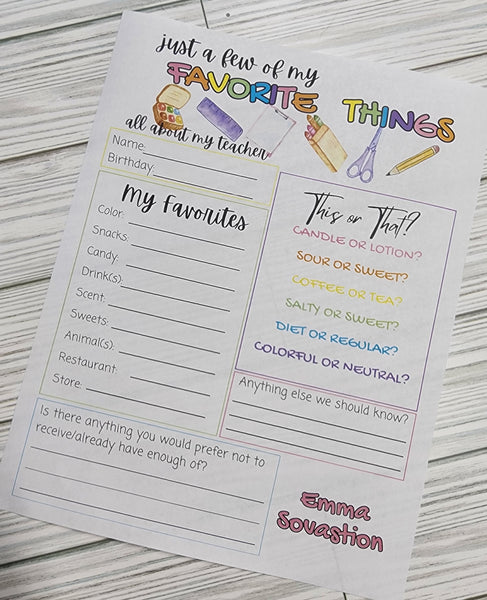 just a few of my
FAVORITE THINGS
all about my teacher
Name:
Birthday:
My Favorites
Color:
Snacks:
Candy:
Drink(s):
Scent:
Sweets:
Animal(s):
Restaurant:
Store:
This or That?
CANDLE OR LOTION?
SOUR OR SWEET?
COFFEE OR TEA?
SALTY OR SWEET?
DIET OR REGULAR?
COLORFUL OR NEUTRAL?
Anything else we should know?
Is there anything you would prefer not to
receive/already have enough of?
Emma
Sovastion